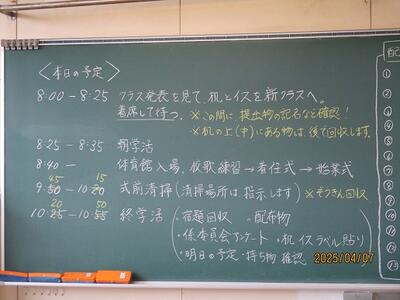 ＜本日の予定＞
8:00 － 8:25 クラス発表を見て、机とイスを新クラスへ。
着席して待つ。 ※この間に、提出物の記名など確認！
※机の上(中)にある物は、後で回収します。
8:25 － 8:35 朝学活
8:40 － 体育館入場、校歌練習→着任式→始業式
45 15
9:50 － 10:20 式前清掃(清掃場所は、指示します) ※ぞうきん回収
20 50
10:25 － 10:55 終学活 ・宿題回収 ・配布物
・係委員会アンケート ・机イスラベル貼り
・明日の予定・持ち物確認
配
①
②
2025/04/07